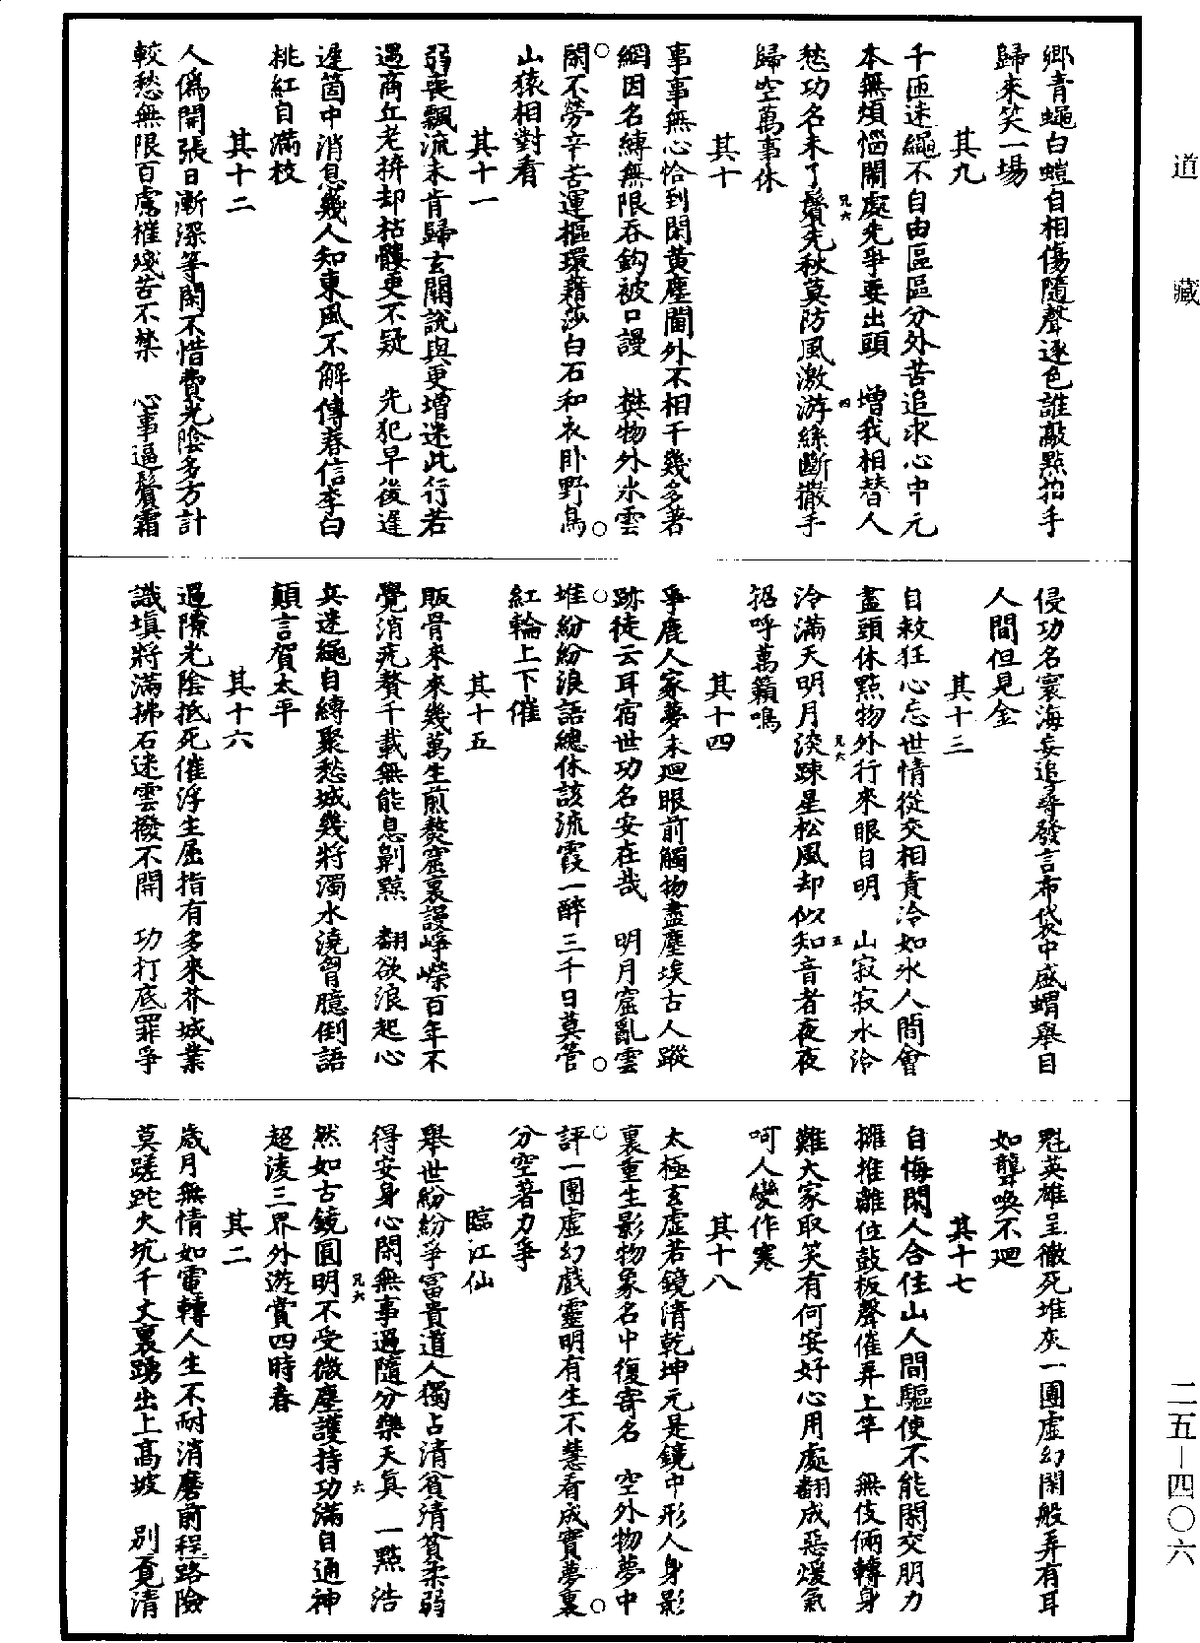 道藏
鄉青蠅白螘自相傷隨聲逐色誰敲點拍手
歸來笑一場
其九
千匝迷繩不自由區區分外苦追求心中元
本無煩惱鬧處先爭要出頭 增我相替人
愁功名未了鬢先秋莫防風激游絲斷撒手
歸空萬事休
其十
事事無心恰到閑黃塵閫外不相干幾多著
網因名縛無限吞鈎被口謾 樊物外水雲
閑不勞辛苦運樞環藉莎白石和衣卧野鳥
山猿相對看
其十一
弱喪飄流未肯歸玄關說與更增迷此行若
遇商丘老拚却枯髏更不疑 先犯早後遲
遲箇中消息幾人知東風不解傳春信李白
桃紅自滿枝
其十二
人僞開張日漸深等閑不惜費光陰多方計
較愁無限百慮摧殘苦不禁 心事逼鬢霜
侵功名寰海妄追尋發言布袋中盛蝟舉目
人間但見金
其十三
自救狂心忘世情從交相責冷如氷人間會
盡頭休點物外行來眼自明 山寂寂水泠
泠滿天明月淡踈星松風却似知音者夜夜
招呼萬籟鳴
其十四
爭鹿人家夢未廻眼前觸物盡塵埃古人蹤
跡徒云耳宿世功名安在哉 明月窟亂雲
堆紛紛浪語總休該流霞一醉三千日莫管
紅輪上下催
其十五
販骨來來幾萬生煎熬窟裏謾崢嶸百年不
覺消疣贅千載無能息劓黥 翻欲浪起心
兵迷繩自縛聚愁城幾將濁水澆胷臆倒語
顛言賀太平
其十六
過隙光陰抵死催浮生屈指有多來芥城業
識填將滿拂石迷雲撥不開 功打底罪爭
魁英雄呈徹死堆灰一團虛幻閑般弄有耳
如聾喚不廻
其十七
自悔閑人合住山人間驅使不能閑交朋力
擁推離位鼓板聲催弄上竿 無伎倆轉身
難大家取笑有何安好心用處翻成惡煖氣
呵人變作寒
其十八
太極玄虛若鏡清乾坤元是鏡中形人身影
裏重生影物象名中復寄名 空外物夢中
評一團虛幻戲靈明有生不慧看成實夢裏
分空著力爭
臨江仙
舉世紛紛爭富貴道人獨占清貧清貧柔弱
得安身心閑無事過隨分樂天真 一點浩
然如古鏡圓明不受微塵護持功滿自通神
超淩三界外遊賞四時春
其二
歲月無情如電轉人生不耐消磨前程路險
莫蹉跎火坑千丈裏踴出上高坡 別覓清
二五—四〇六